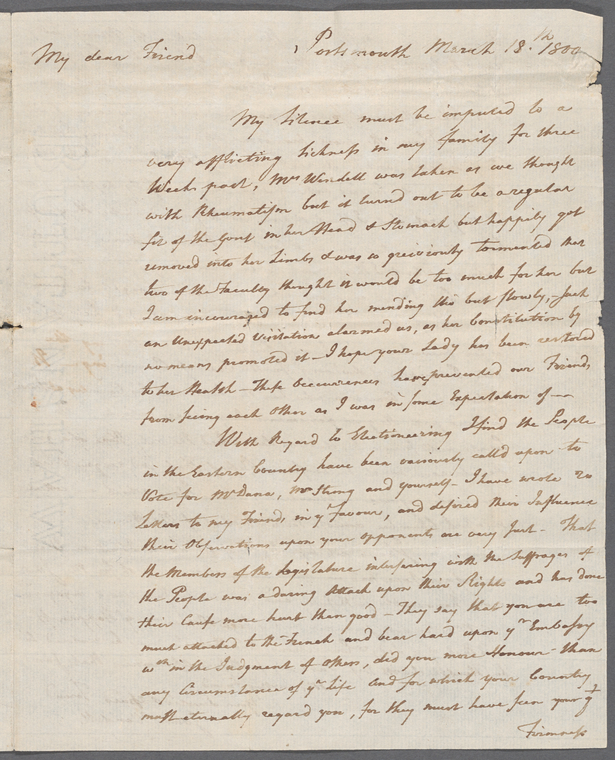 My dear Friend Portsmouth March 18.th 1800
My Silence must be imputed to a
very afflicting Sickness in my family for three
Weeks past, Mrs Wendell was taken as we thought
with Rheumatism but it turned out to be a regular
fit of the Gout in her Head & Stomach but happily got
removed into her Limbs & was so greiviously tormented that
two of the Faculty thought it would be too much for her but
I am incouraged to find her mending tho but slowly, Such
an Unexpected Visitation alarmed us, as her Constitution by
no means promoted it – I hope your Lady has been restored
to her Health – These Occurrences have prevented our Friends
from seing each other as I was in some Expectation of —
With Regard to Electioneering I find the People
in the Eastern Country have been variously call'd upon to
Vote for Mr Dana, Mr Strong and yourself – I have wrote 20
Letters to my Friends in yr favour, and desired their Influence
their Observations upon your opponents are very Just – That
the Members of the Legislature interfering with the Suffrages of
the People was a daring Attack upon their Rights and has done
their Cause more hurt than good – They say that you are too
much attached to the French and bear hard upon yr Embassy
wch in the Judgment of others, did you more Honour than
any Circumstance of yr Life And for which your Country
must eternally regard you, for they must have seen your yt
Firmness